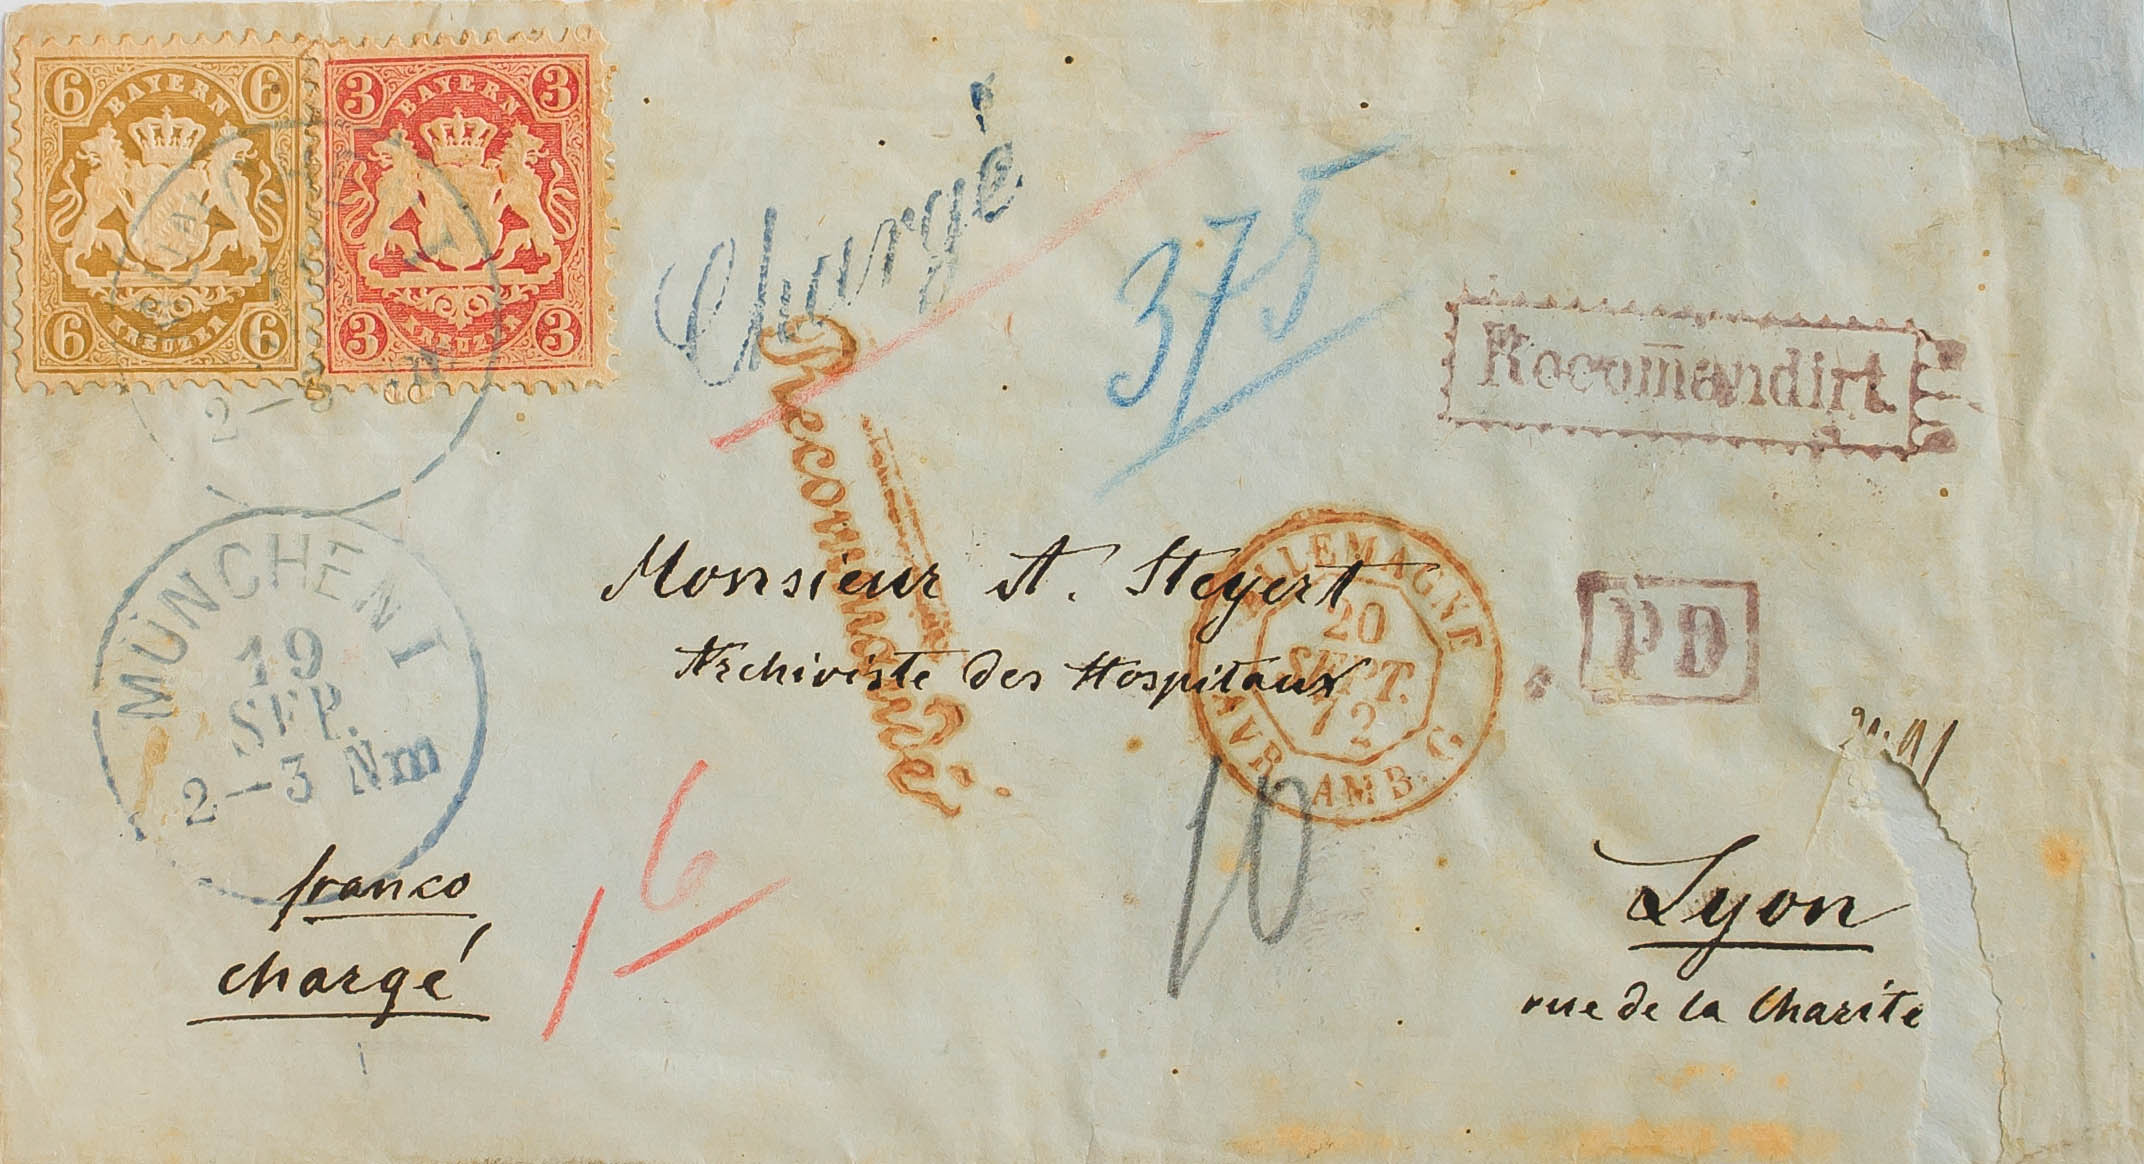 6 6 3 3
BAYERN BAYERN
KREUZER KREUZER
6 6 3 3
Chargé
375
Recomandirt
Recommandé
MÜNCHEN I
19
SEP.
2-3 Nm
Monsieur A. Steyert
Archiviste des Hospitaux
ALLEMAGNE
20
SEPT.
72
AVR. AMB. C.
PD
franco
chargé
6
10
Lyon
rue de la Charite